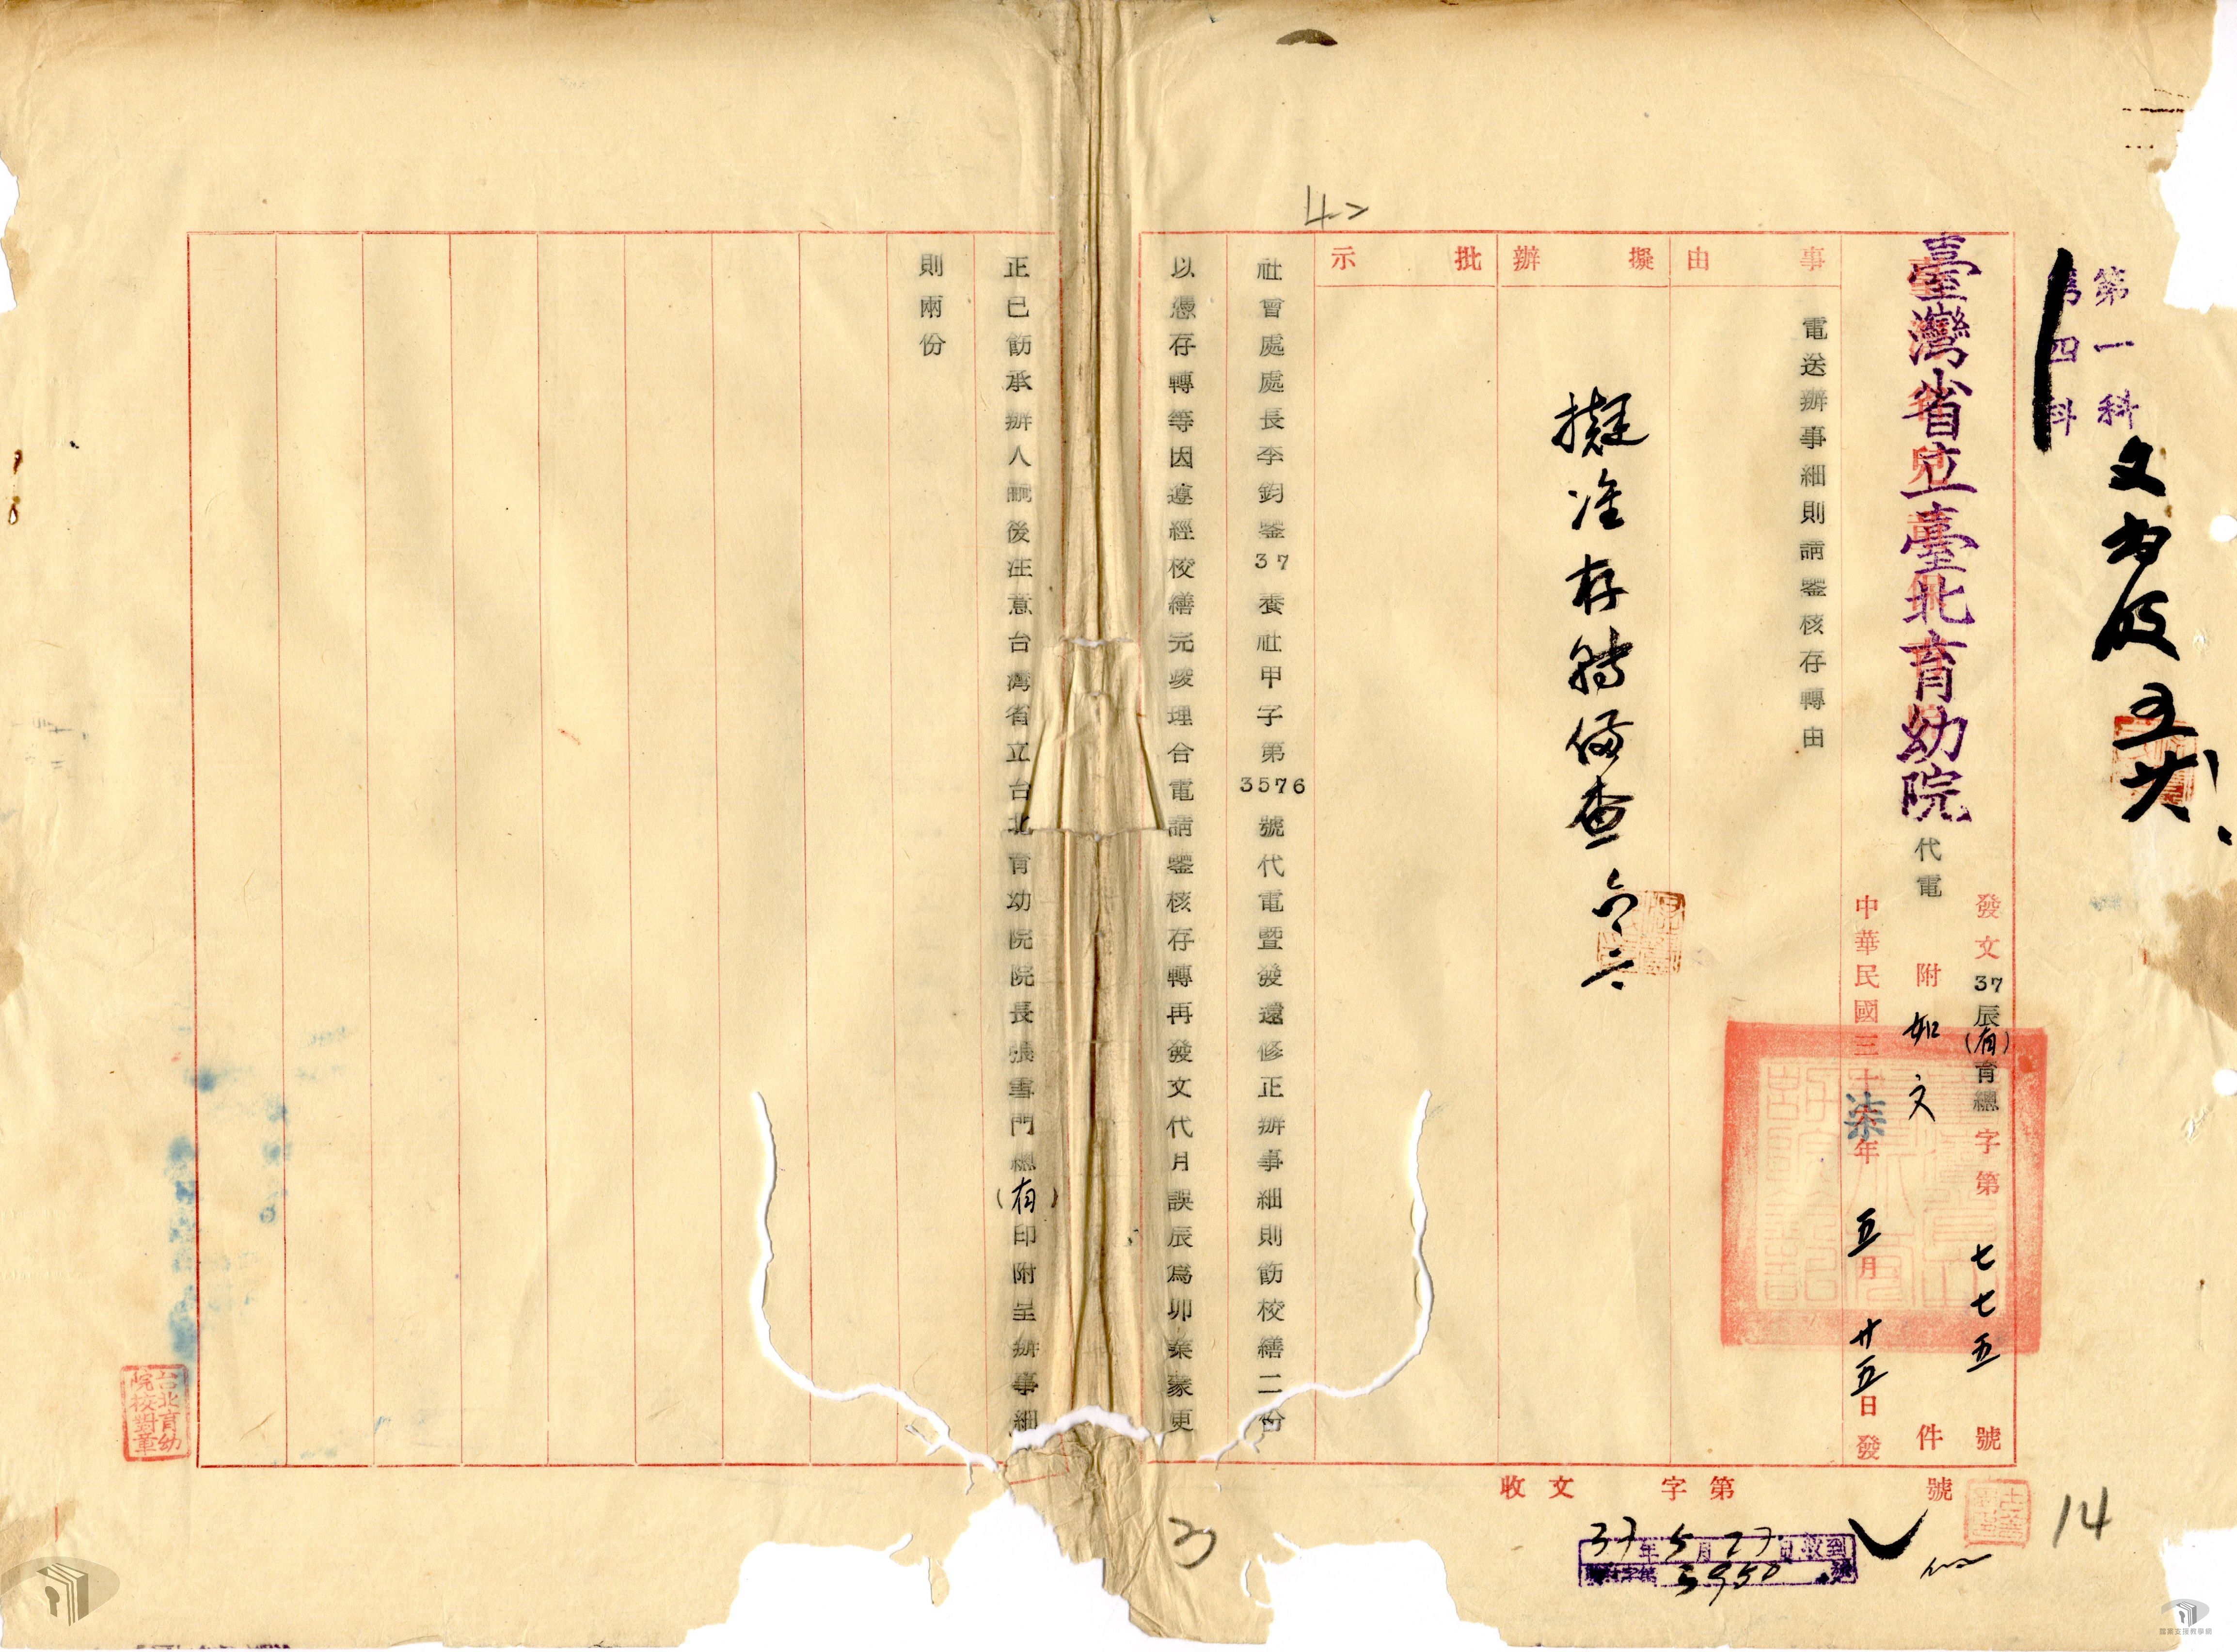 第一科
第四科
臺灣省立臺北育幼院代電
發文37辰(有)育總字第七七五號
附如文件
中華民國三十柒年五月廿五日發
事由
電送辦事細則請鑒核存轉由
擬辦
擬准存轉備查
批示
社會處處長李鈞鑒37養社甲字第3576號代電暨發還修正辦事細則飭校繕二份
以憑存轉等因遵經校繕完竣理合電請鑒核存轉再發文代月誤辰為卯棄蒙更
正已飭承辦人嗣後注意台灣省立台北育幼院院長張雪門總(有)印附呈辦事細
則兩份
收文 字第 號
37年5月27日收到
5950
台北育幼院校對章
42
14